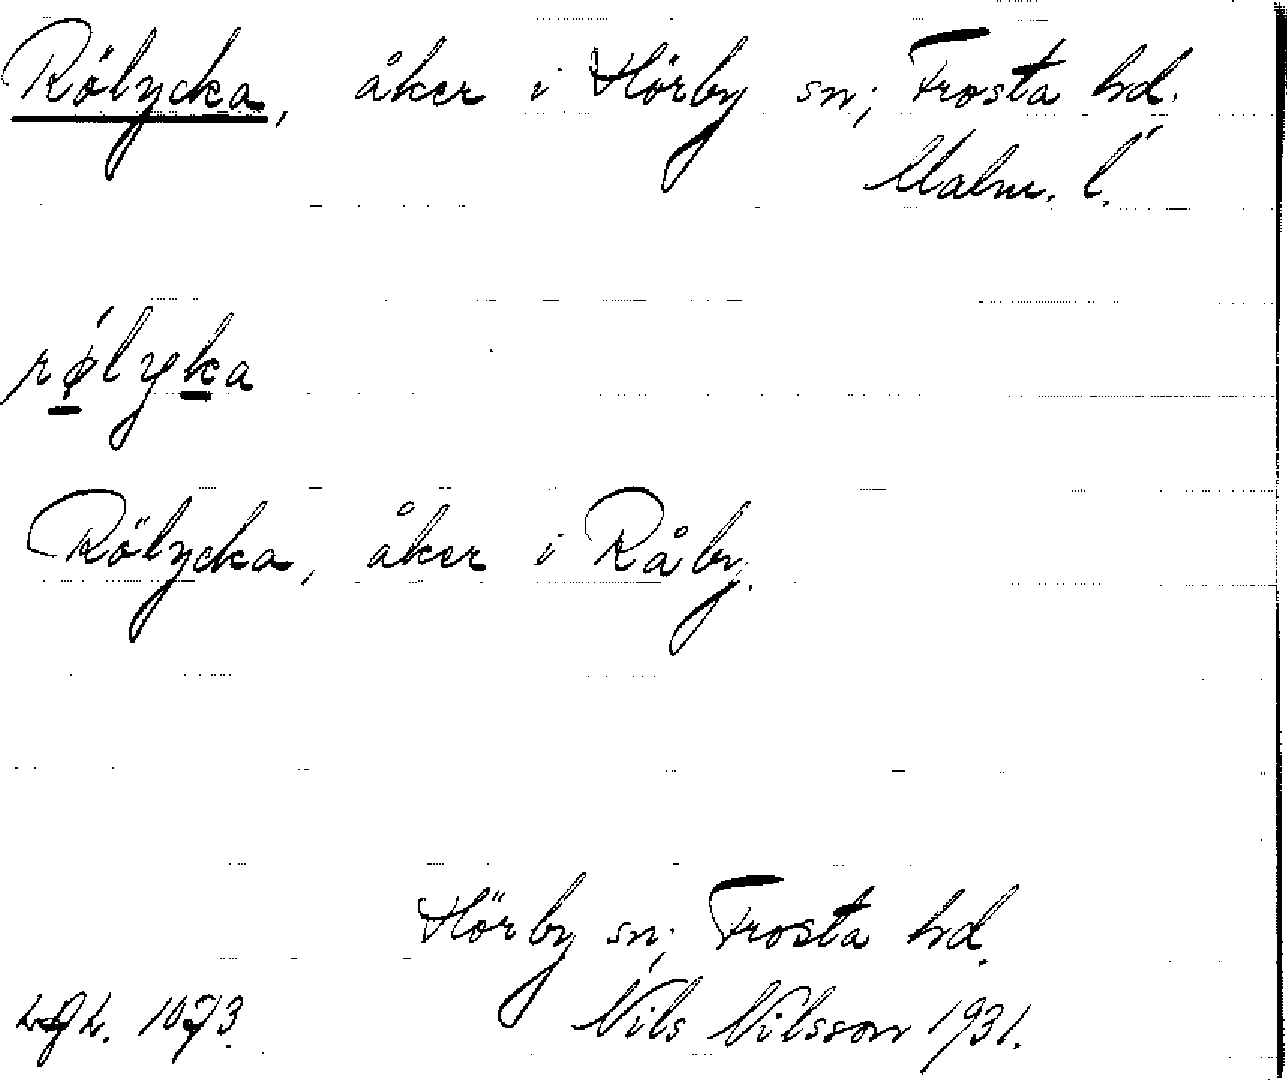 Rölycka, åker i Hörby sn; Frosta hd.
Malm. l.
rǿlyka
Rölycka, åker i Råby.
Hörby sn; Frosta hd.
Nils Nilsson 1931.